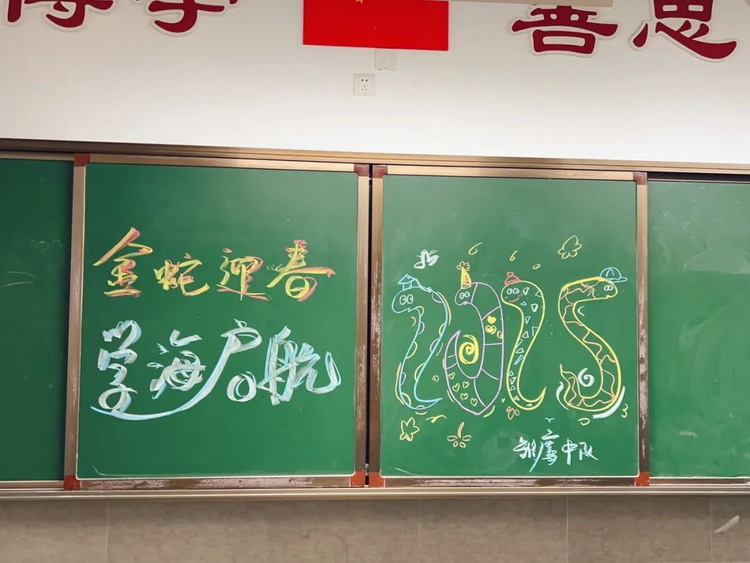 博学
善思
金蛇迎春
学海启航
2025
雏鹰中队